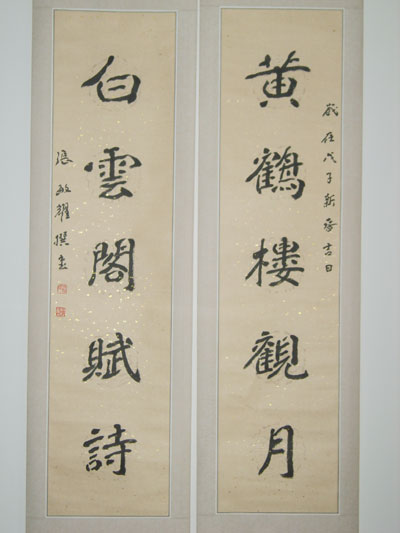 歲在戊子新春吉日
黃鶴樓觀月
白雲閣賦詩
張敏耀撰書